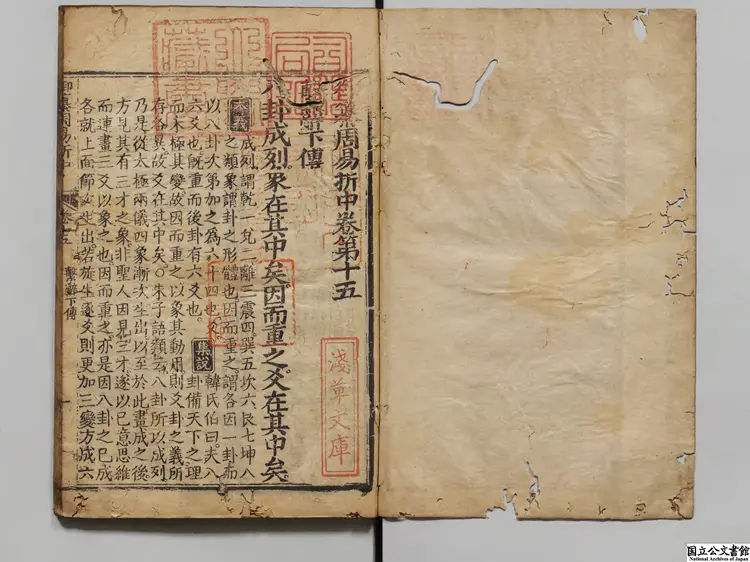 御纂周易折中卷第十五
繫辭下傳
八卦成列。象在其中矣。因而重之。爻在其中矣。
本義
成列謂乾一兌二離三震四巽五坎六艮七坤八
之類象謂卦之形體也因而重之謂各因一卦而
以八卦次第加之為六十四也爻
六爻也旣重而後卦有六爻也。
集說
韓氏伯曰夫八
卦備天下之理
而未極其變故因而重之以象其動則爻卦之義所
存各異故爻在其中矣。朱子語類云八卦所以成列
乃是從太極兩儀四象漸次生出以至於此畫成之後
方見其有三才之象非聖人因見三才遂以己意思維
而連畫三爻以象之也因而重之亦是因八卦之已成
各就上面節次生出若旋生逐爻則更加三變方成六
御纂周易折中
卷十五
繫辭下傳
淺草文庫
国立公文書館
National Archives of Japan